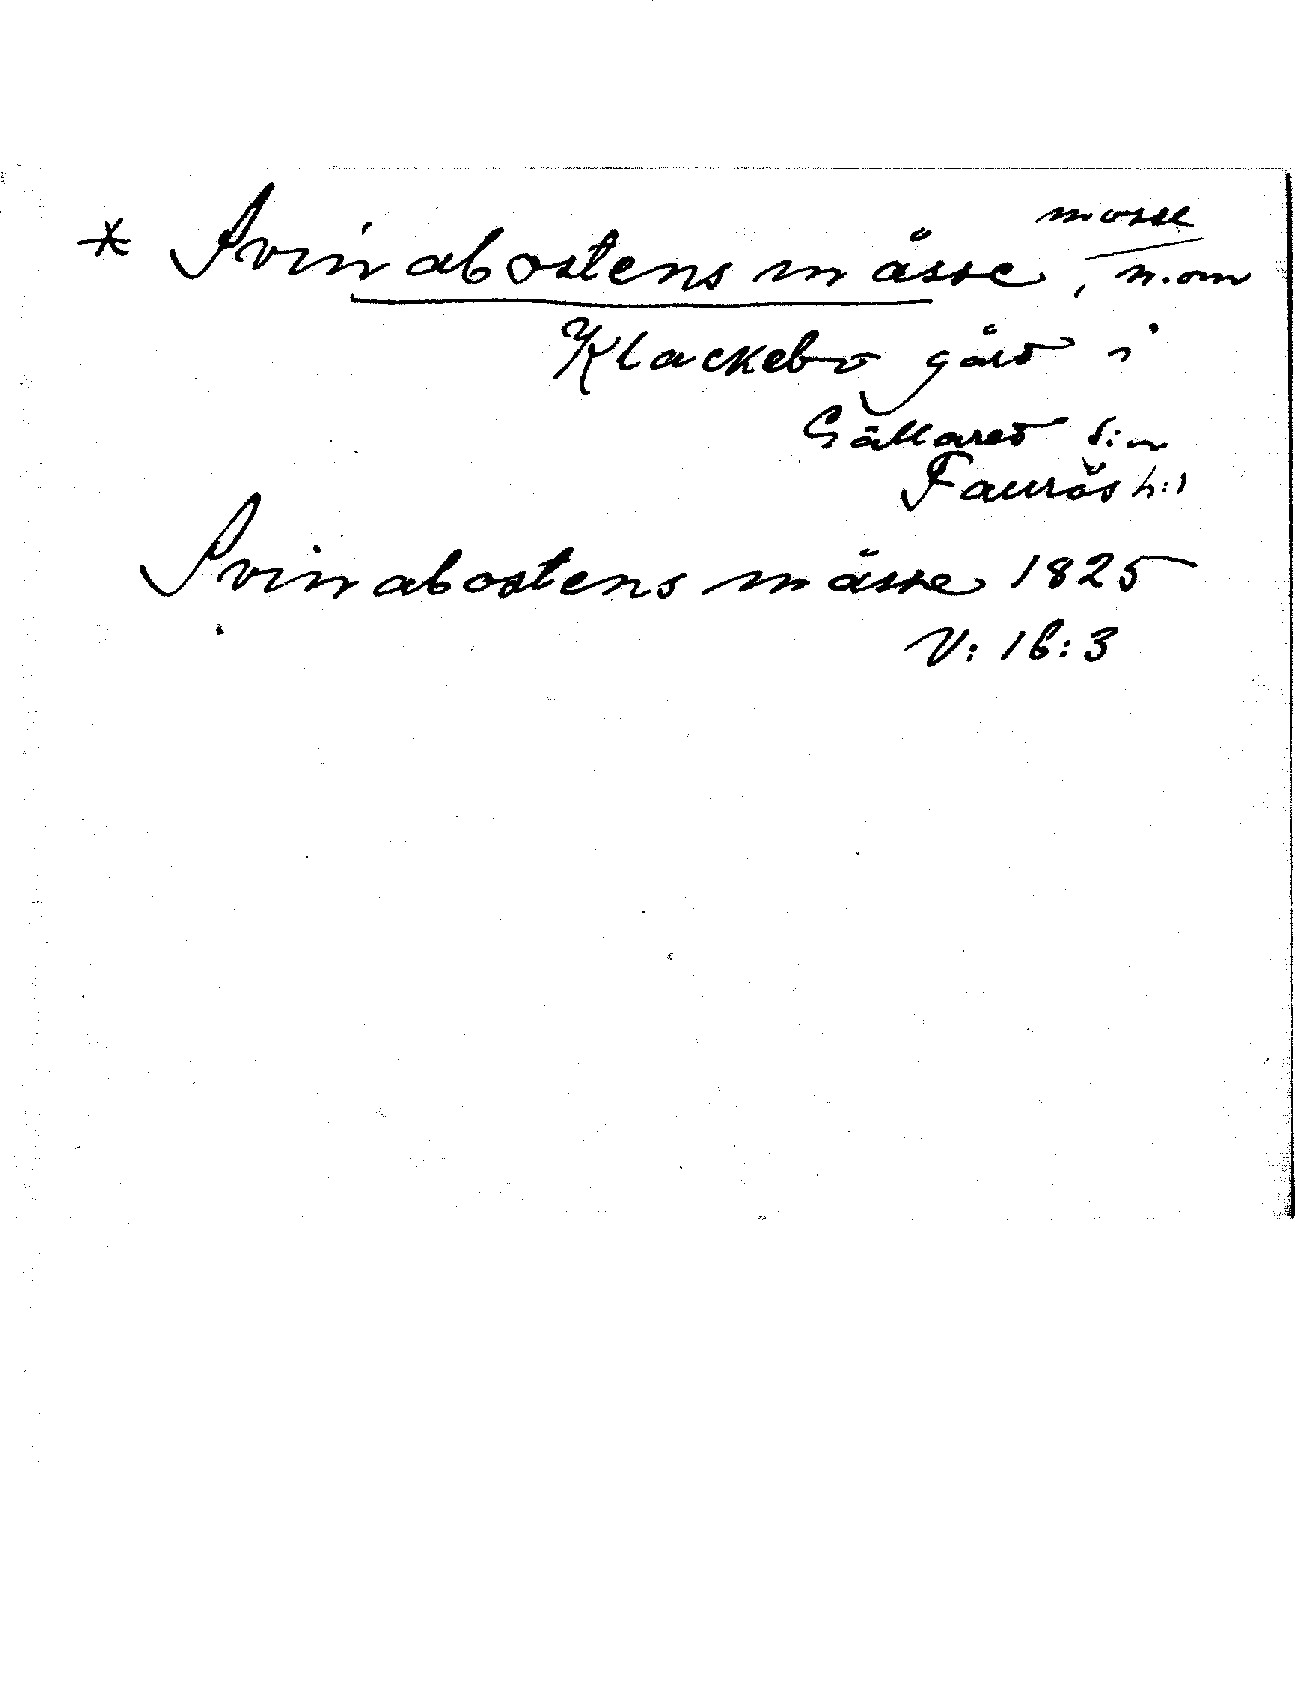 mosse
* Svinabostens måsse, n. om
Klackebo gård i
Gällared s:n
Faurås h:d
Svinabostens måsse 1825
V: 16:3